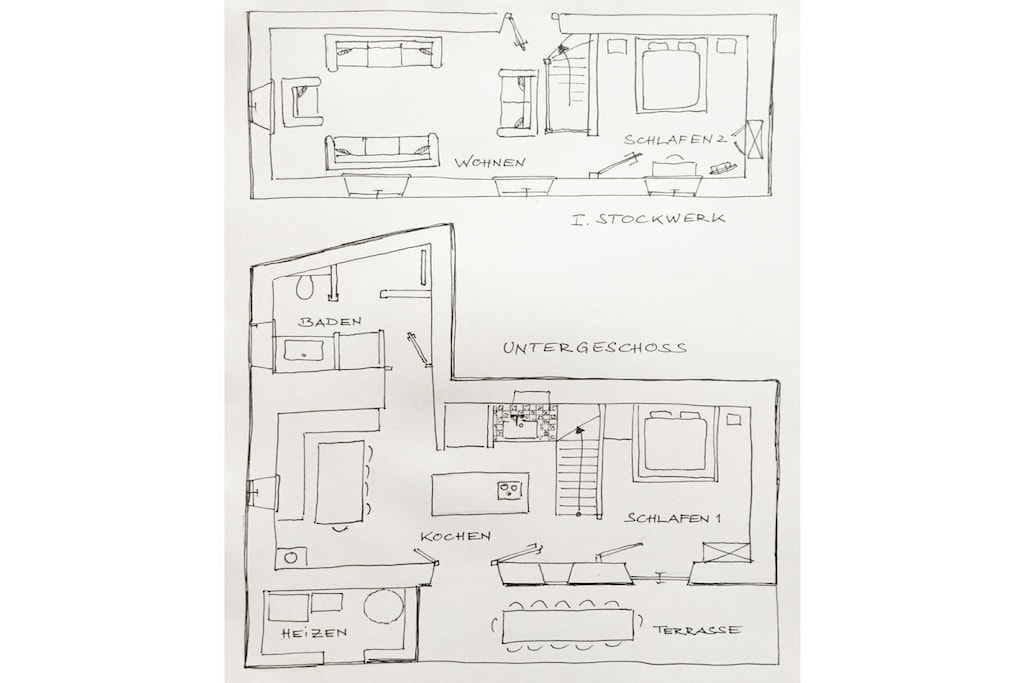 SCHLAFEN 2
WOHNEN
I. STOCKWERK
BADEN
UNTERGESCHOSS
SCHLAFEN 1
KOCHEN
HEIZEN
TERRASSE